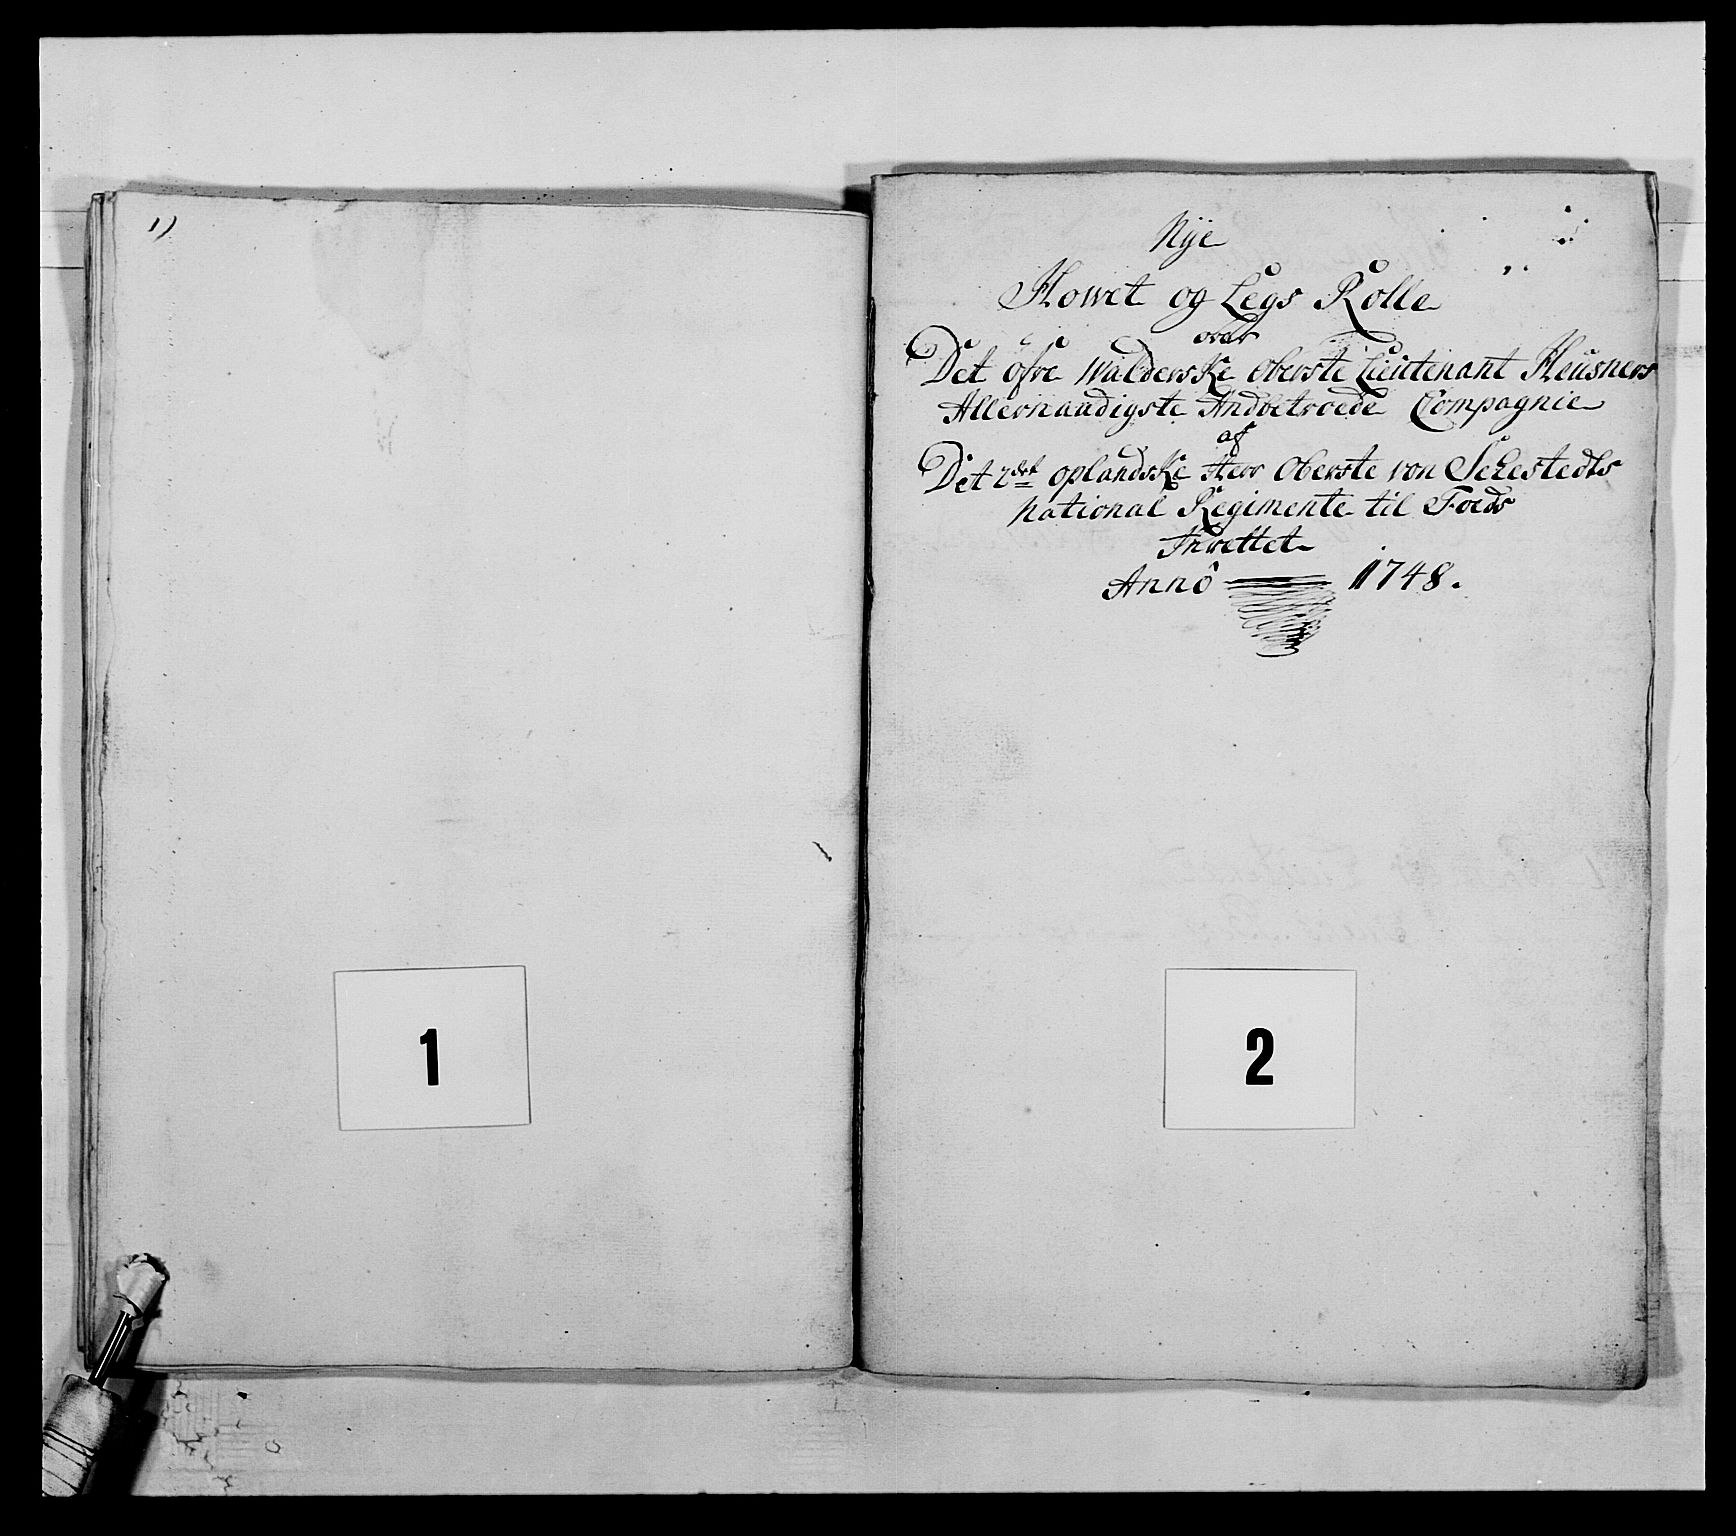 1)
1
Nÿe
Howet og Legs Rolle
over
Det öfre Walderske Oberste Lieutenant Heusners
Allernaadigste Andbetroede Compagnie
af
Det 2det oplandske Herr Oberste von Sehestedts
National Regimente til Foeds
Inrettet
Annô 1748.
2